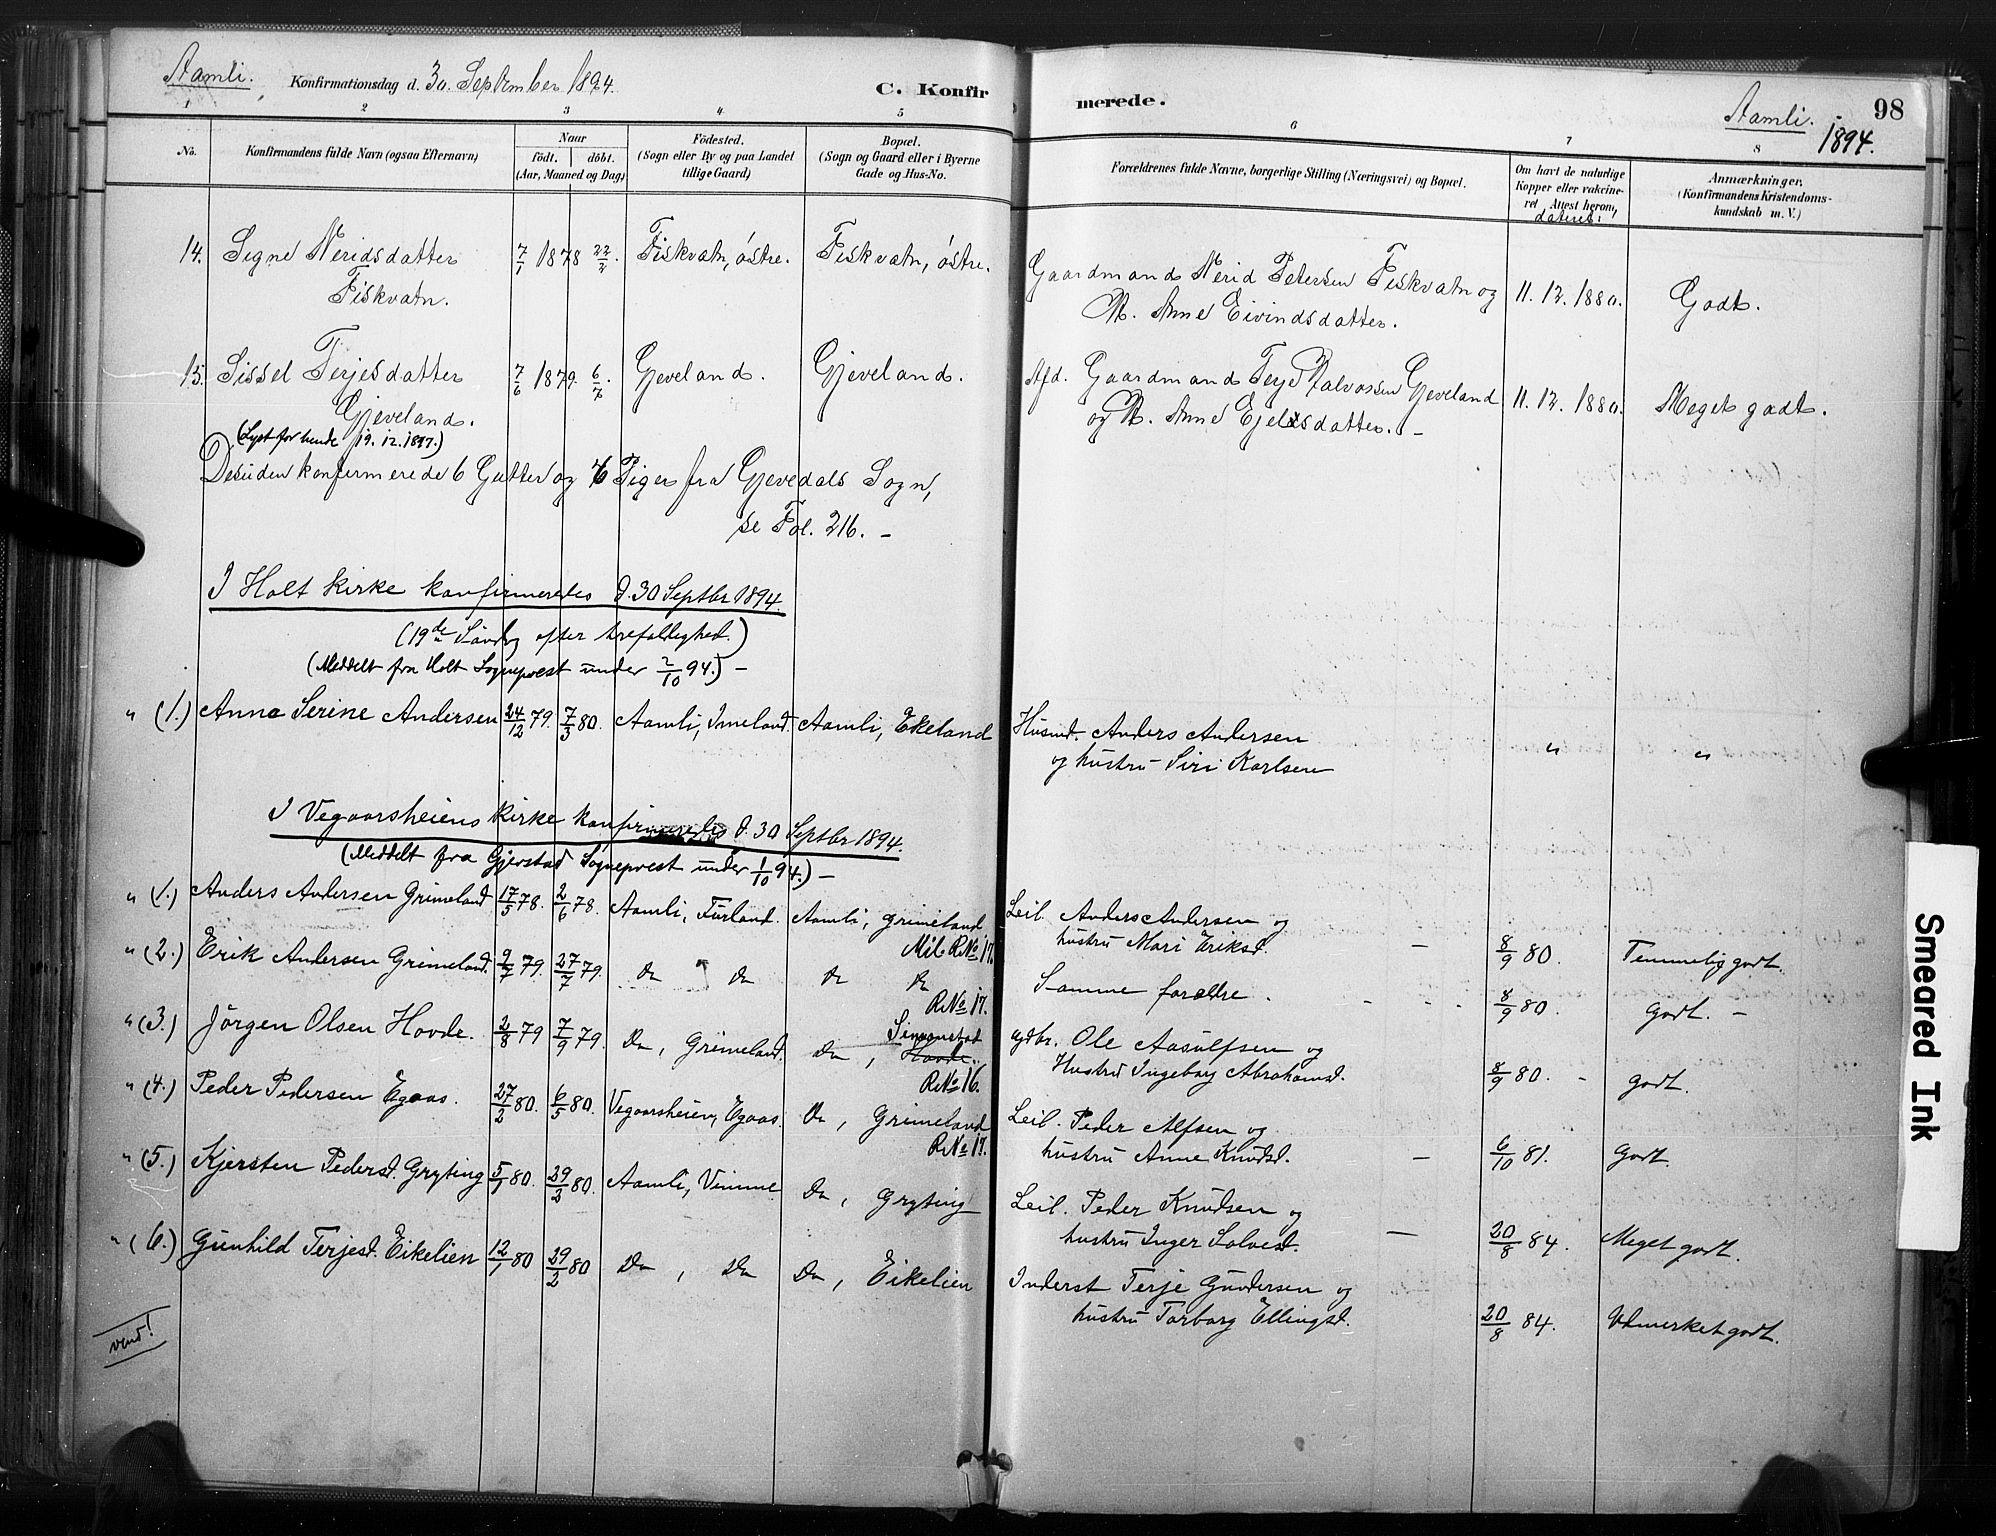 Aamli. Konfirmationsdag d. 30. September 1894. C. Konfir
merede. Aamli. 98
1894.
1 2 3 4 5
6 7 8
No. Konfirmandens fulde Navn (ogsaa Efternavn) Naar födt. döbt. (Aar, Maaned og Dag) Födested. (Sogn eller By og paa Landet tillige Gaard) Bopæl. (Sogn og Gaard eller i Byerne Gade og Hus-No.
Forældrenes fulde Navne, borgerlige Stilling (Næringsvei) og Bopæl. Om havt de naturlige Kopper eller vakcineret Attest herom, dateret: Anmærkninger. (Konfirmandens Kristendomskundskab m. V.)
14. Signe Neridsdatter 7/1 1878 22/2. Fiskvatn, østre. Fiskvatn, østre.
Fiskvatn.
Gaardmand Nerid Petersen Fiskvatn og 11. 12. 1880. Godt.
M. Anne Eivindsdatter.
15. Sissel Terjesdatter 7/6 1879. 6/7. Gjeveland. Gjeveland.
Gjeveland.
(Lyst for hende 19. 12. 1897.)
Afd. Gaardmand Terje Halvorsen Gjeveland 11. 12. 1880. Meget godt.
og M. Anne Ejelsdatter. -
Desuden konfirmerede 6 Gutter og 6 Piger fra Gjevedals Sogn,
se Fol. 216. -
I Holt kirke konfirmeredes d. 30 Septbr 1894.
(19de Søndg efter trefoldighed.)
(Meddelt fra Holt Sogneprest under 2/10 94.) -
" (1.) Anne Serine Andersen 24/12 79. 7/3 80. Aamli, Imeland. Aamli, Ekeland
Husmd. Anders Andersen " "
og hustru Siri Karlsen
I Vegaarsheiens kirke konfirmeredes d. 30 Septbr 1894.
(Meddelt fra Gjerstad Sogneprest under 1/10 94.) -
" (1.) Anders Andersen Grimeland 17/5 78. 2/6 78. Aamli, Furland. Aamli, Grimeland
Mil. R.No 17.
Leil. Anders Andersen og
hustru Mari Eriksd. - 8/9 80. Temmelig godt.
" (2.) Erik Andersen Grimeland. 9/7 79. 27/7 79. Do " Do Do Do
R.No 17.
Samme forældre. 8/9 80. Godt. -
" (3.) Jörgen Olsen Hovde. 2/8 79 7/9 79. Do, Grimeland. Do, Hovde. Simonstad
R.No 16.
gdbr. Ole Aasulfsen og
Hustru Ingeborg Abrahamsd. 8/9 80. - godt.
" (4.) Peder Pedersen Egaas. 27/2 80. 6/5 80. Vegaarsheien, Egaas. Do, Grimeland
R.No 17.
Leil. Peder Alfsen og
hustru Anne Knudsd. - 6/10 81. Godt.
" (5.) Kjersten Pedersd. Gryting 5/1 80. 29/2 80. Aamli, Vimme Do, Gryting
Leil. Peder Knudsen og
hustru Inger Solvesd. - 20/8 84. Meget godt.
" (6.) Gunhild Terjesd. Eikelien 12/1 80 29/2 80 Do, Do Do, Eikelien
Inderst Terje Gundersen og
hustru Torborg Ellingsd. 20/8 84. Udmerket godt.
vend!
Smeared Ink